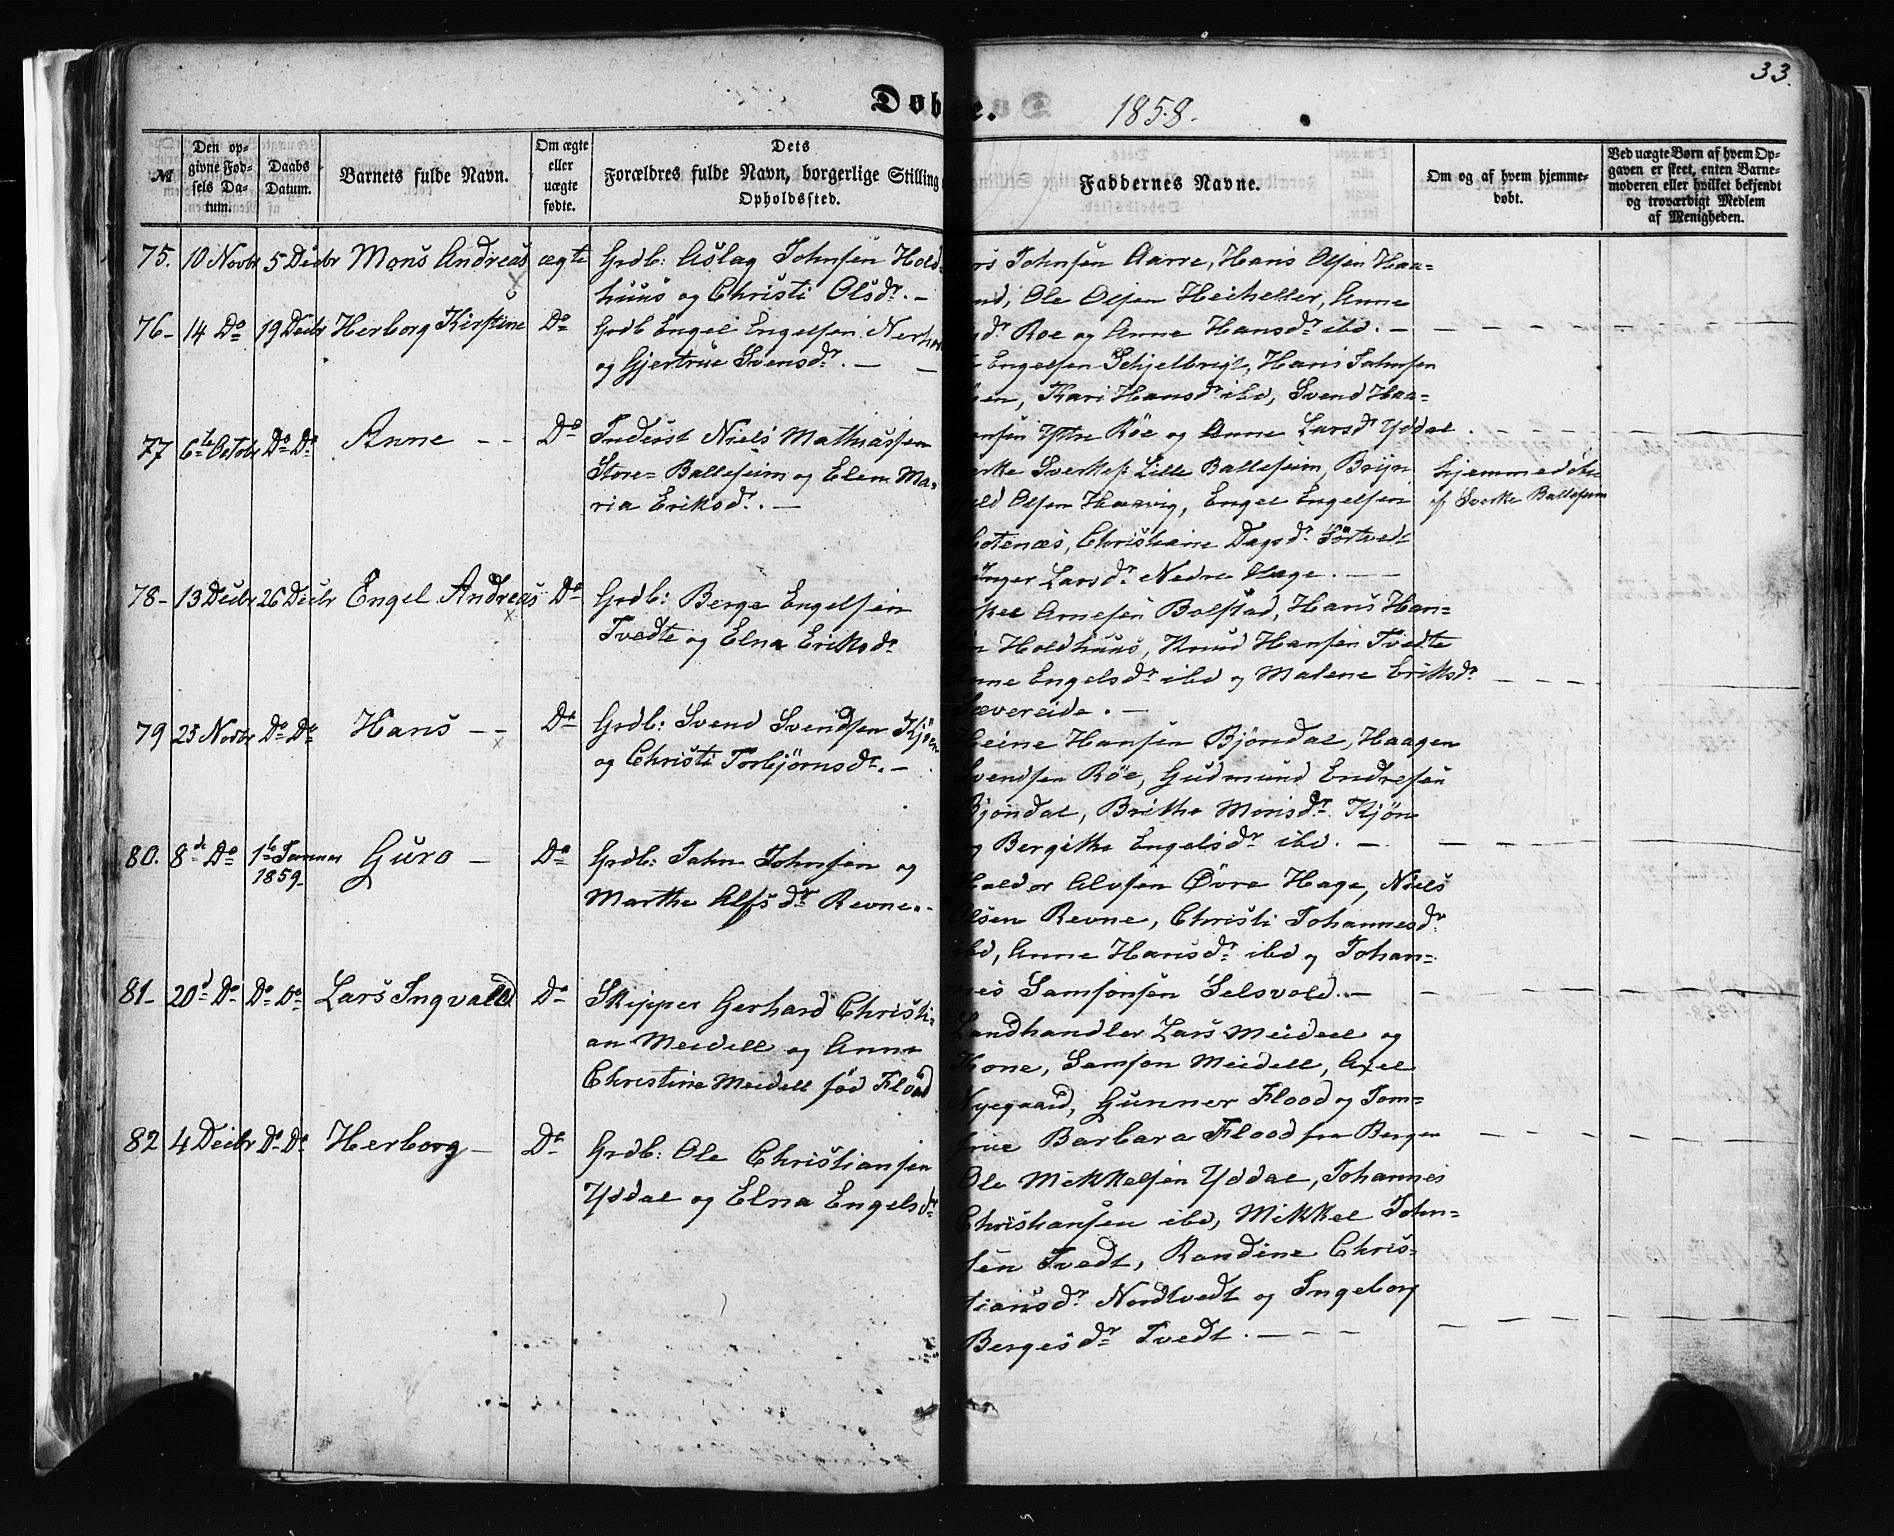 33.
Döbte. 1858.
№
Den opgivne Fødsels Datum.
Daabs Datum.
Barnets fulde Navn.
Om ægte eller uægte fødte.
Dets Forældres fulde Navn, borgerlige Stilling
Opholdssted.
Faddernes Navne.
Om og af hvem hjemmedøbt.
Ved uægte Børn af hvem Opgaven er skeet, enten Barnemoderen eller hvilket bekjendt og troværdigt Medlem af Menigheden.
75. 10 Novbr 5 Decbr Mons Andreas ægte Grdb: Aslag Johnsen Hold-
huus og Christi Olsdr. -
Johnsen Aarre, Hans Olsen Haa-
Ole Olsen Heiheller, Anne
Roe og Anne Hansdr ibd. -
76- 14 Do 19 Decbr Herborg Kirstine Do Grdb Engel Engelsen
og Gjertrue Svensdr. -
Engelsen Schjelbrigt, Hans Johnsen
Kari Hansdr ibd, Svend Haa-
Ytre Röe og Anne Larsdr Yddal.
77 6te Octobr Do Do Anne - - Do Inderst Niels Mathiassen
Store-Ballesem og Elen Ma-
ria Eriksdr. -
Lille Ballesem, Bryn
Olsen Haavig, Engel Engelsen
Christiane Dagsdr Sörtvedt
Larsdr Nedre Hage. -
hjemmedöbt
af Sverke Ballesem
78- 13 Decbr 26 Decbr Engel Andreas Do Grdb: Berge Engelsen
Tvedte og Elna Eriksdr
Arnesen Bolstad, Hans Han-
Holdhuus, Knud Hansen Tvedte
Engelsdr ibd og Malene Eriksdr
Sævereide. -
79 25 Novbr Do Do Hans - - Do Grdb: Svend Svendsen Kjöen
og Christi Torbjörnsdr. -
Heine Hansen Bjöndal, Haagen
Svendsen Röe, Gudmund Endresen
Bjöndal, Brithe Monsdr Kjön
og Bergithe Engelsdr ibd. -
80. 8de Do 1te Januar 1859- Guro - Do Grdb: John Johnsen og
Marthe Alfsdr Revne. -
Haldor Alvsen Övre Hage, Niels
Olsen Revne, Christi Johannesdr
ibd, Anne Hansdr ibd og Johan-
nes Samsonsen Selsvold. -
81- 20d Do Do Do Lars Ingvald Do Skipper Gerhard Christi-
an Meidell og Anne
Christine Meidell föd Flood
Landhandler Lars Meidell og
Kone, Samson Meidell, Axel
Nyegaard, Gunner Flood og Jom-
frue Barbara Flood fra Bergen
82 4 Decbr Do Do Herborg - Do Grdb: Ole Christiansen
Yddal og Elna Engelsdr
Ole Mikkelsen Yddal, Johannes
Christiansen ibd, Mikkel John-
sen Tvedt, Randine Chris-
tiansdr Nordtvedt og Ingeborg
Bergesdr Tvedt. -